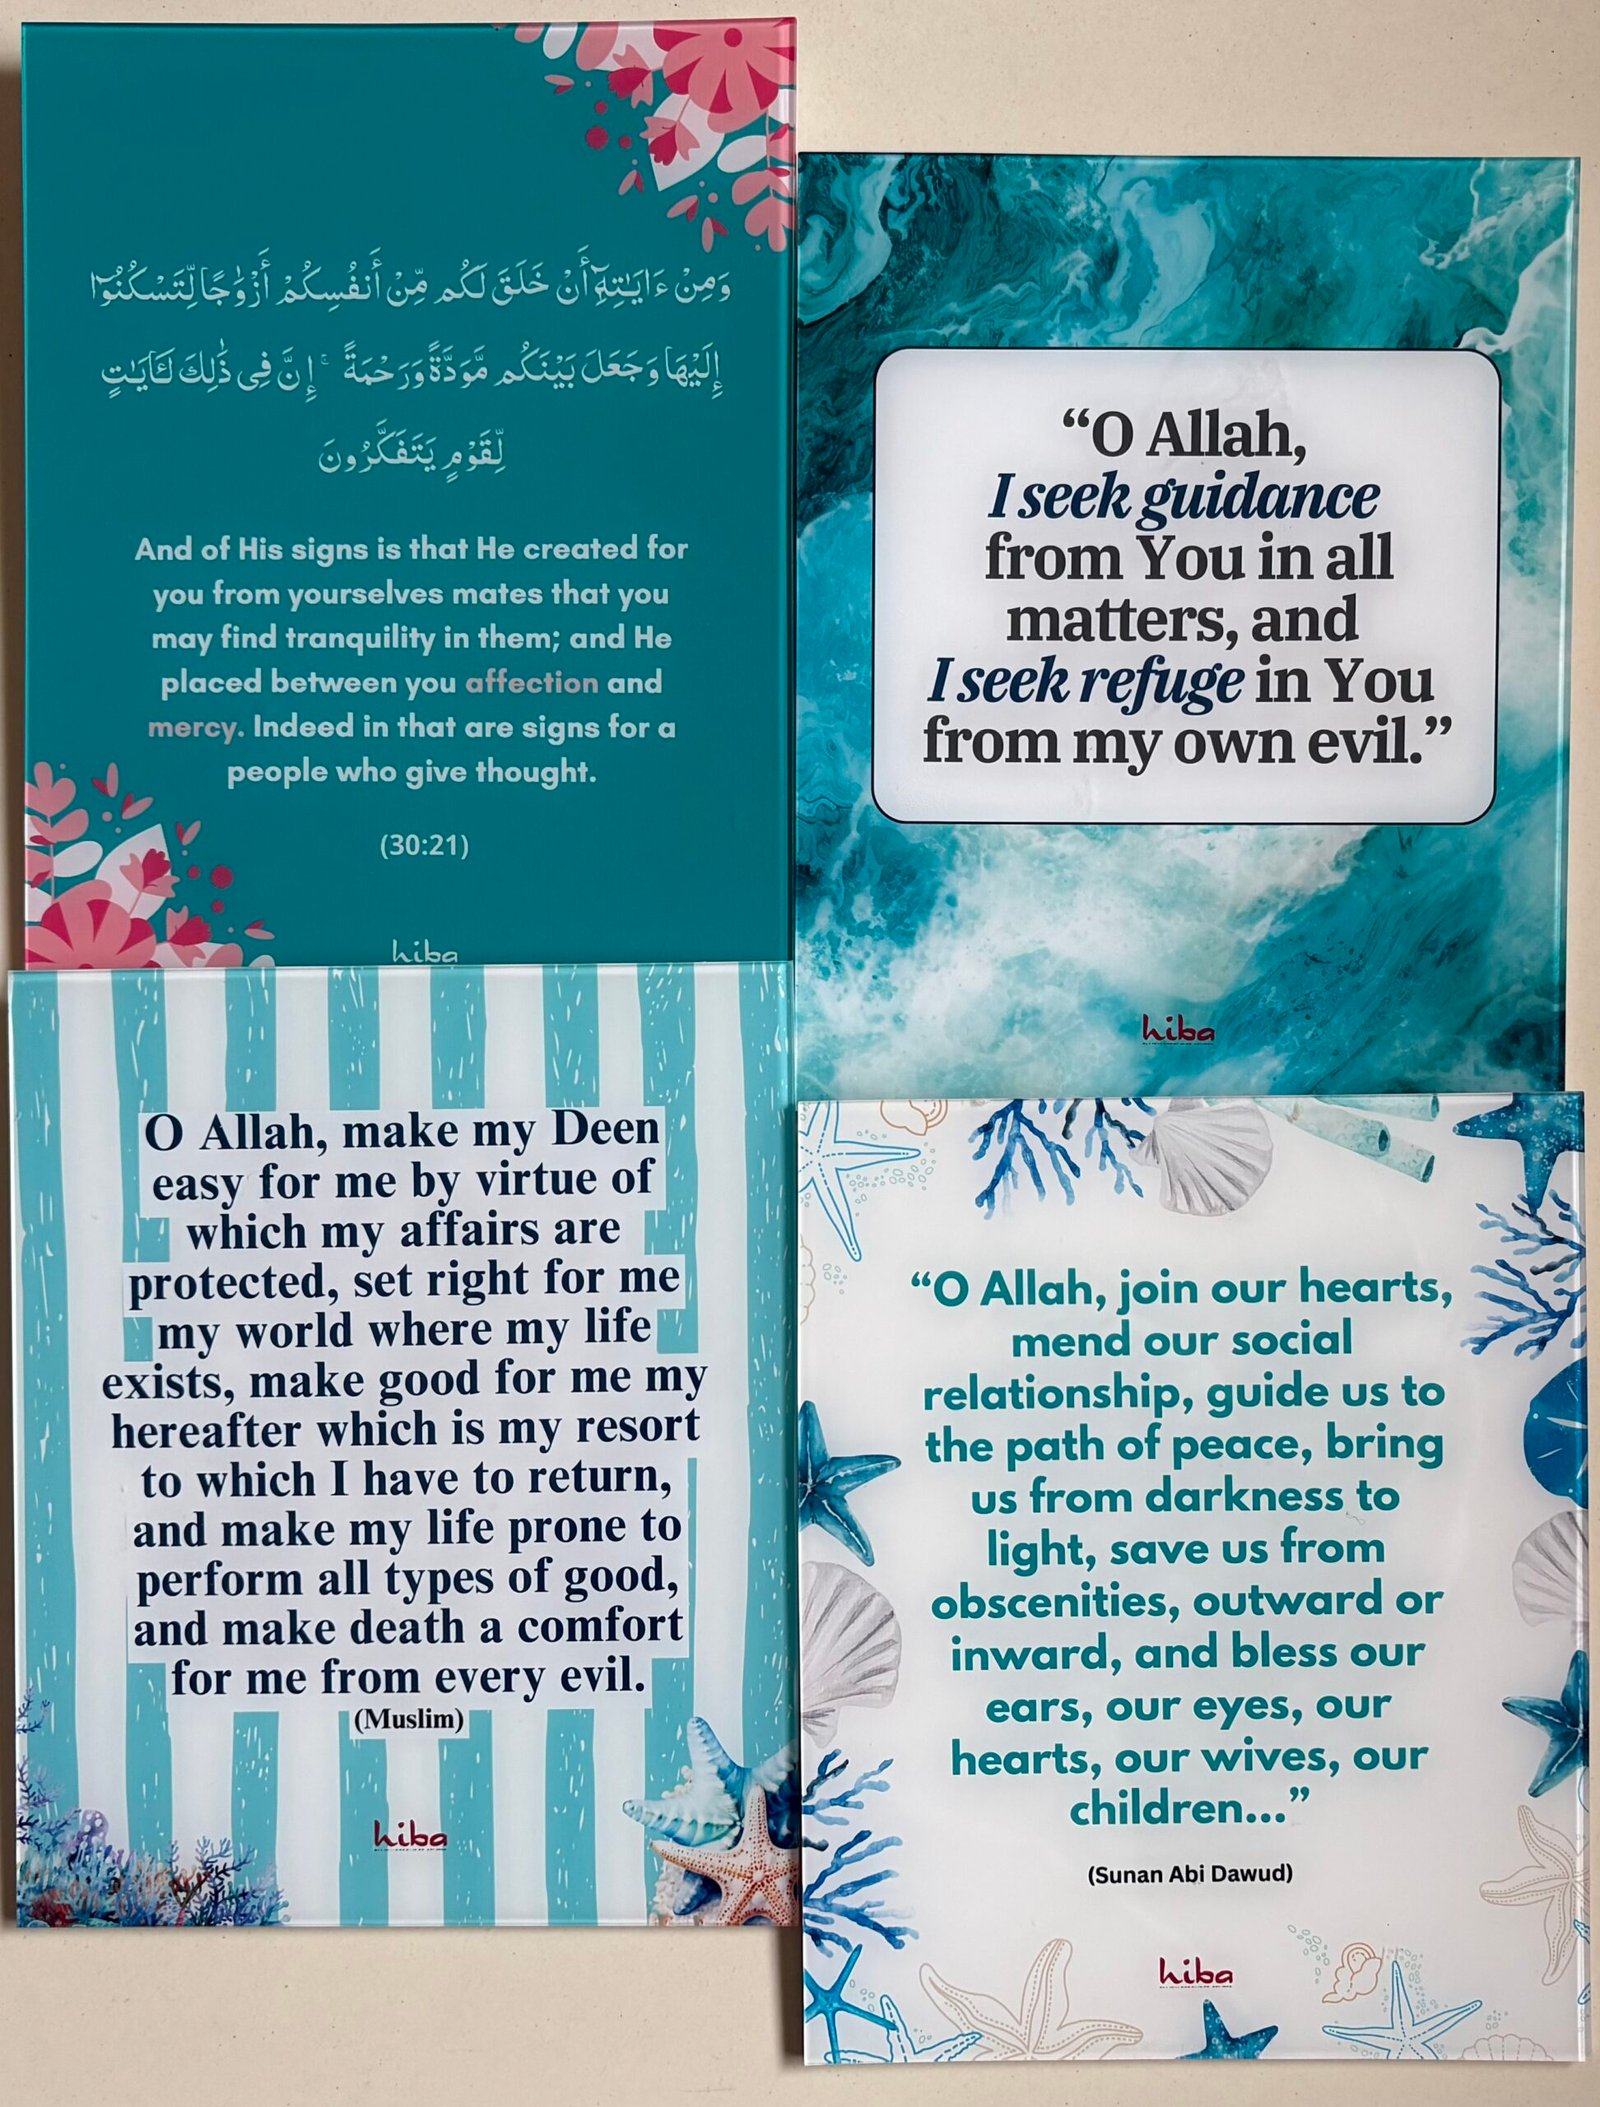 وَمِنْ ءَايَـٰتِهِۦٓ أَنْ خَلَقَ لَكُم مِّنْ أَنفُسِكُمْ أَزْوَٰجًا لِّتَسْكُنُوٓا۟
إِلَيْهَا وَجَعَلَ بَيْنَكُم مَّوَدَّةً وَرَحْمَةً ۚ إِنَّ فِى ذَٰلِكَ لَـَٔايَـٰتٍ
لِّقَوْمٍ يَتَفَكَّرُونَ
And of His signs is that He created for
you from yourselves mates that you
may find tranquility in them; and He
placed between you affection and
mercy. Indeed in that are signs for a
people who give thought.
(30:21)
hiba
“O Allah,
I seek guidance
from You in all
matters, and
I seek refuge in You
from my own evil.”
hiba
O Allah, make my Deen
easy for me by virtue of
which my affairs are
protected, set right for me
my world where my life
exists, make good for me my
hereafter which is my resort
to which I have to return,
and make my life prone to
perform all types of good,
and make death a comfort
for me from every evil.
(Muslim)
hiba
“O Allah, join our hearts,
mend our social
relationship, guide us to
the path of peace, bring
us from darkness to
light, save us from
obscenities, outward or
inward, and bless our
ears, our eyes, our
hearts, our wives, our
children...”
(Sunan Abi Dawud)
hiba